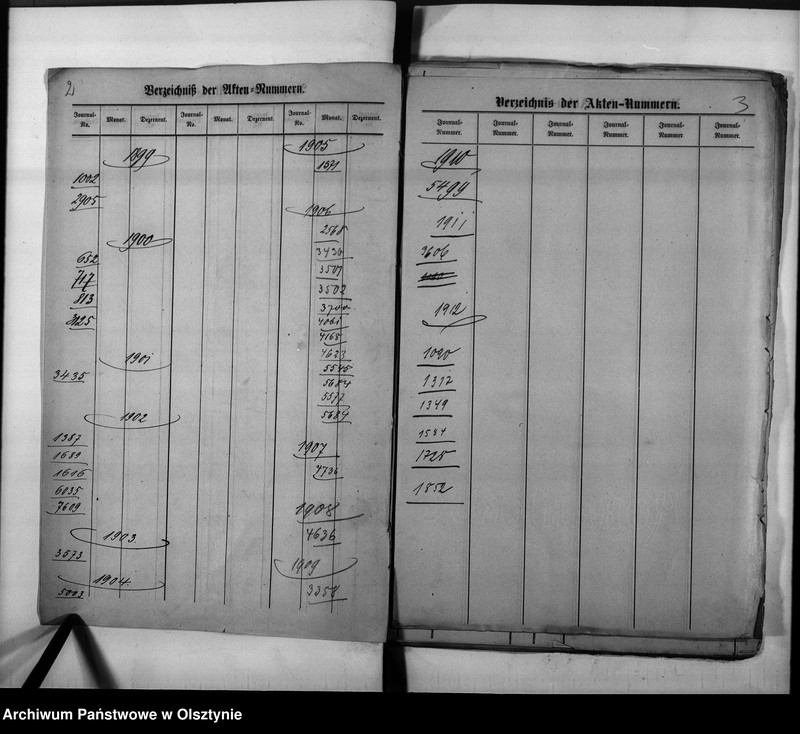 2
Verzeichniß der Akten-Nummern.
Journal-No. Monat. Dezernent. Journal-No. Monat. Dezernent. Journal-No. Monat. Dezernent.
1899
1002
2905
1900
652
717
813
3125
1901
3435
1902
1387
1689
1616
6035
7609
1903
3573
1904
5003
1905
1571
1906
2568
3430
3507
3502
4061
4165
4623
5545
5684
5577
5684
1907
4736
1908
4636
1909
3358
Verzeichnis der Akten-Nummern.
3
Journal-Nummer. Journal-Nummer. Journal-Nummer. Journal-Nummer. Journal-Nummer Journal-Nummer.
1910
5499
1911
3606
1912
1020
1312
1349
1584
1725
1852
Archiwum Państwowe w Olsztynie